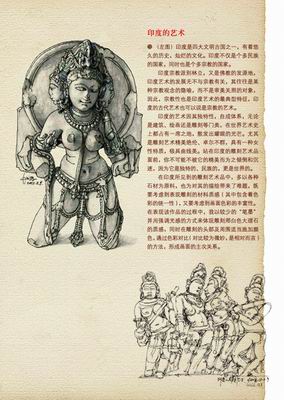 印度的艺术
（左图）印度是四大文明古国之一，有着悠
久的历史、灿烂的文化。印度不仅是个多民族
的国家，同时也是个多宗教的国家。
印度宗教派别林立，又是佛教的发源地，
印度艺术的发展无不与宗教有关，其往往是某
种宗教观念的隐喻，而不是审美关照的对象，
因此，宗教性也是印度艺术的最典型特征，印
度的古代艺术也可以说是宗教的艺术。
印度的艺术因其独特性，自成体系，无论
是建筑、绘画还是雕刻等门类，在世界艺术史
上都占有一席之地，散发出耀眼的光芒。尤其
是雕刻艺术精美绝伦，卓尔不群，具有一种女
性特质，极具曲线美。站在印度的雕刻艺术品
面前，你不可能不被它的精美伟为之倾倒和沉
迷，因为它是独特的、民族的，更是世界的。
在印度所见到的雕刻艺术品中，多以各种
石材为原料，也为对其的描绘带来了难题，既
要考虑到表现雕刻的材料质感（其中包含着色
彩的统一性），又要考虑到画面色彩的丰富性。
在表现该作品的过程中，我以较少的“笔墨”
并用强调光感的方式来体现雕刻那白色大理石
的质感，同时在雕刻的头部及周围适当施加颜
色，通过色彩对比（对比较为微妙，是相对而言）
的方法，形成画面的主次关系。